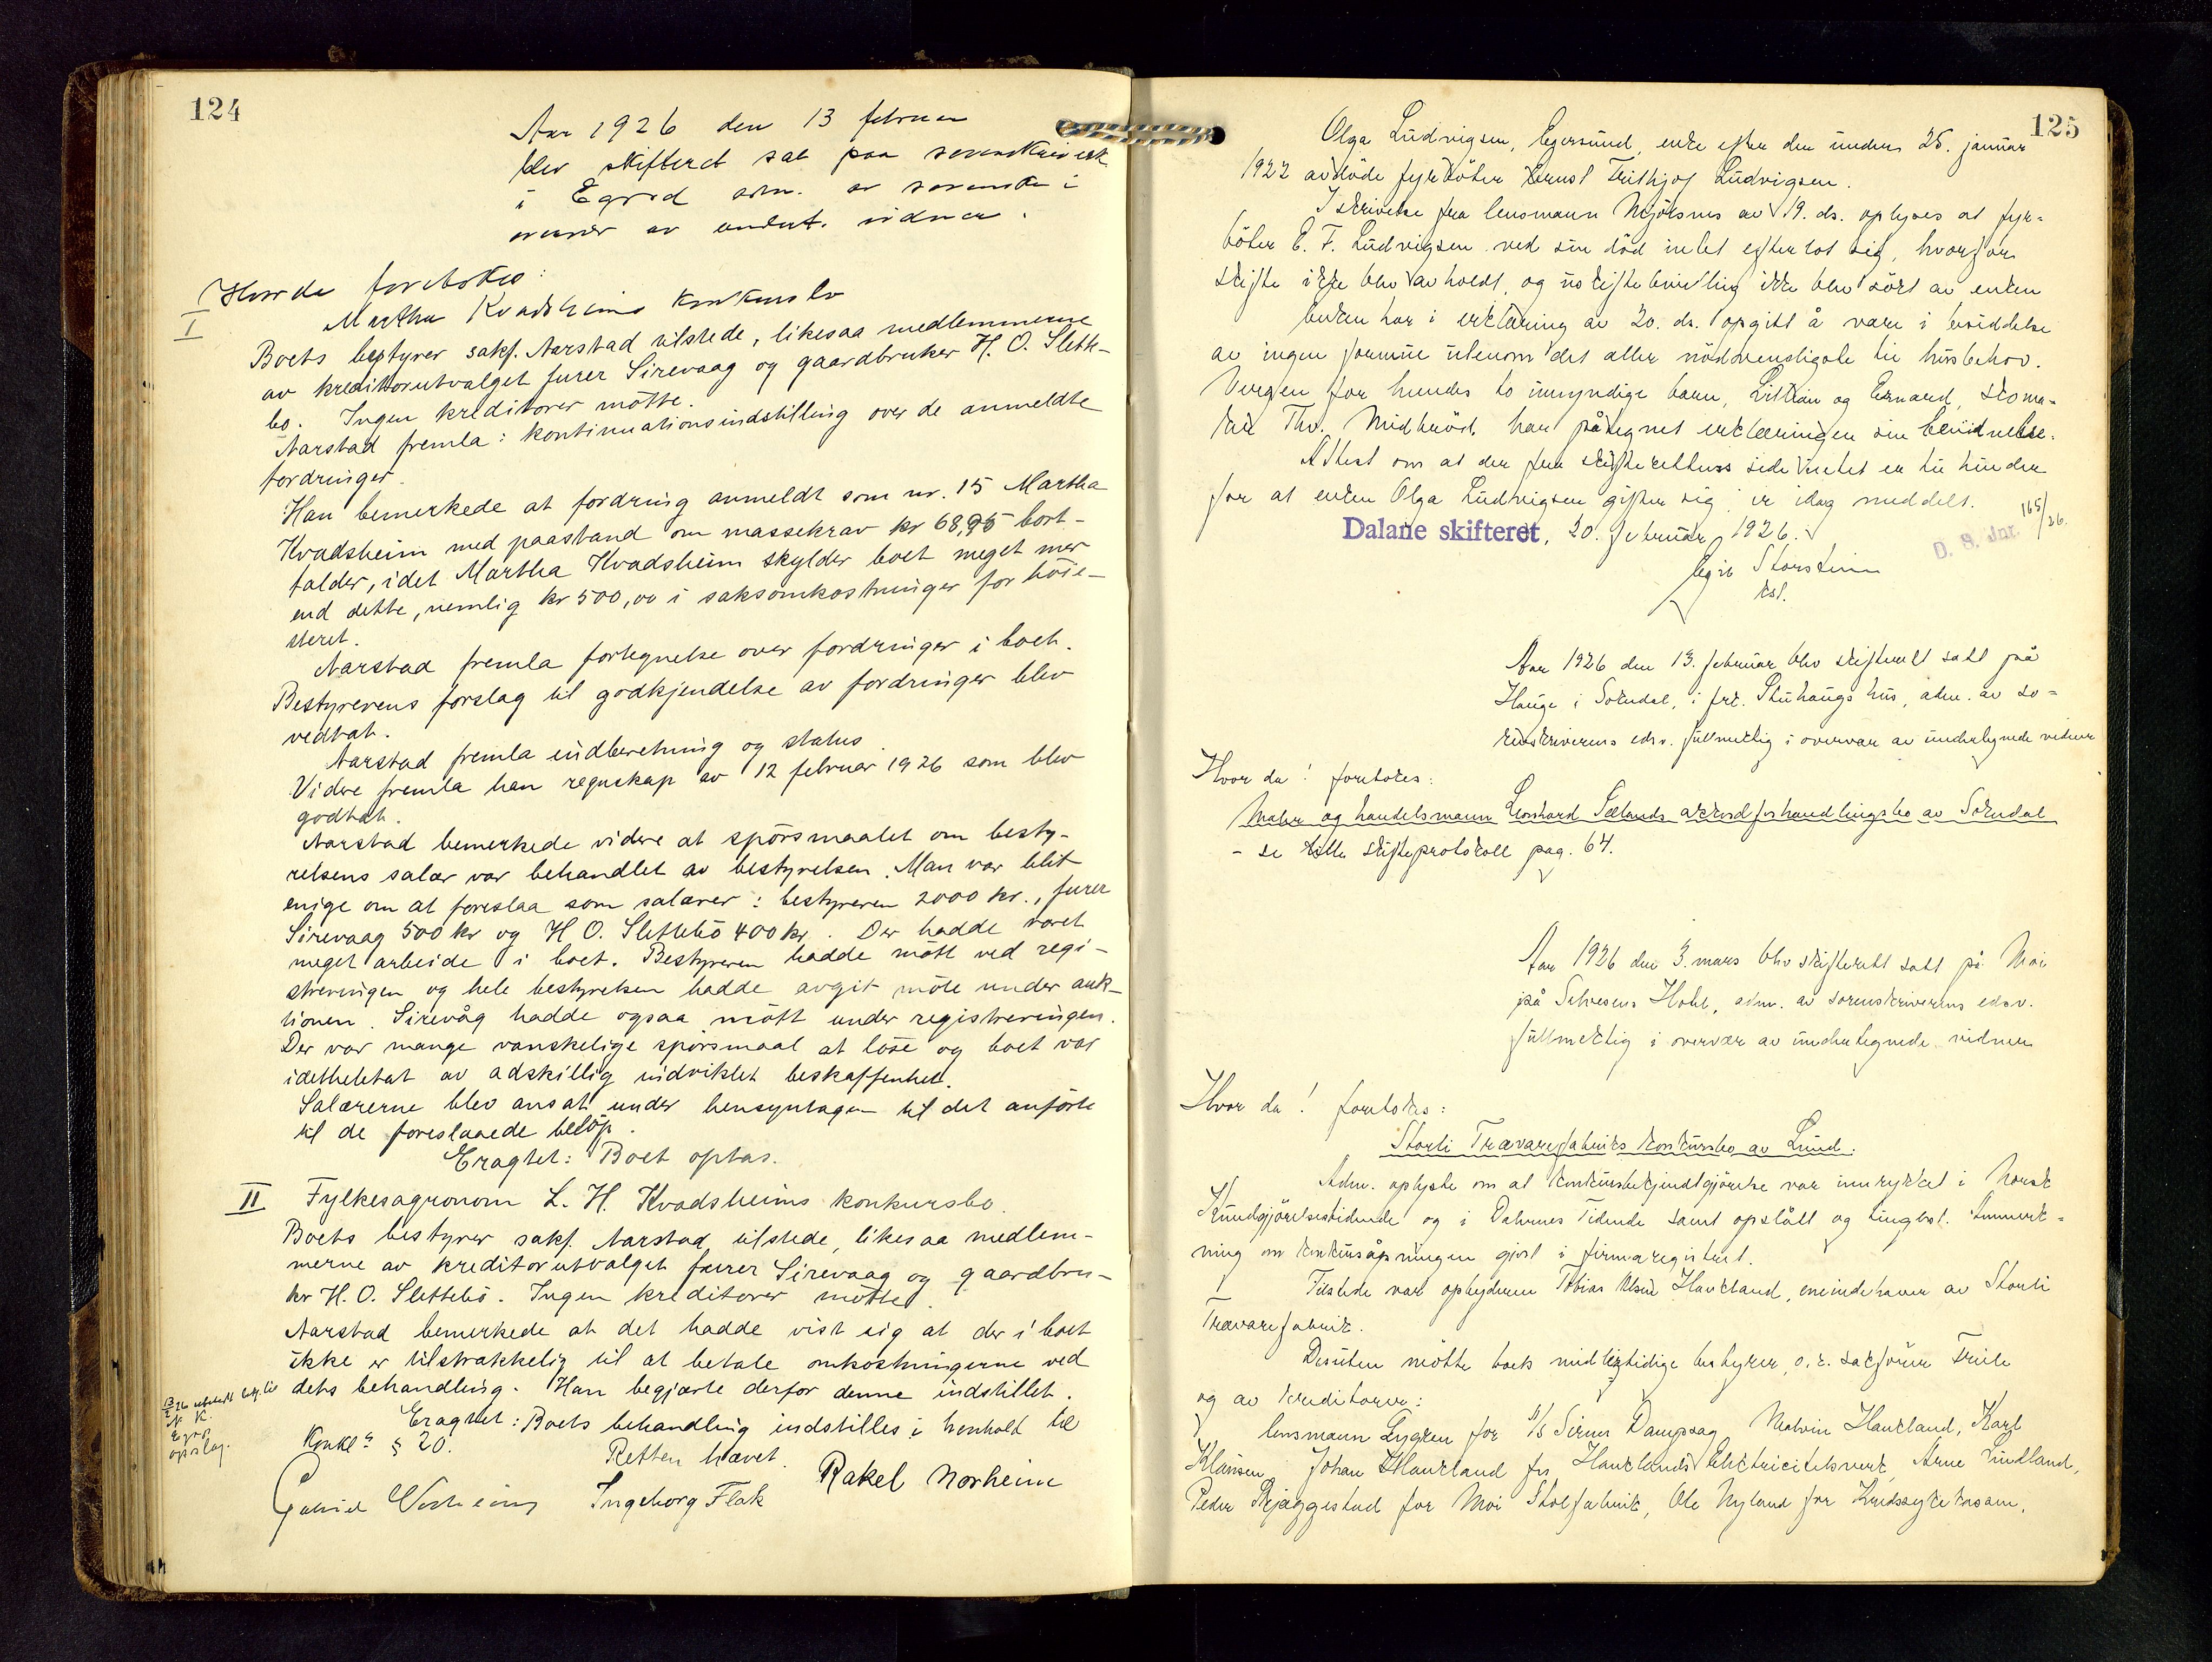 124
Aar 1926 den 13 februar
blev skifteret sat paa sorenskriverk
i Egrsd adm. av sorenskr. i
overvær av undert. vidner.
Hvorda foretokes:
I
Martha Kvadsheims konkursbo
Boets bestyrer sakf. Aarstad tilstede, likesaa medlemmerne
av kreditorutvalget furer Sirevaag og gaardbruker H. O. Slette-
bø. Ingen kreditorer møtte.
Aarstad fremla: kontinuationsindstilling over de anmeldte
fordringer.
Han bemerkede at fordring anmeldt som nr. 15 Martha
Kvadsheim med paastand om massekrav kr 68,95 bort-
falder, idet Martha Kvadsheim skylder boet meget mer
end dette, nemlig kr 500,00 i saksomkostninger for høie-
steret.
Aarstad fremla fortegnelse over fordringer i boet.
Bestyrerens forslag til godkjendelse av fordringer blev
vedtat.
Aarstad fremla indberetning og status.
Videre fremla han regnskap av 12 februar 1926 som blev
godtat.
Aarstad bemerkede videre at spørsmaalet om besty-
relsens salær var behandlet av bestyrelsen. Man var blit
enige om at foreslaa som salærer: bestyreren 2000 kr., furer
Sirevaag 500 kr og H O. Slettebö 400 kr. Der hadde været
meget arbeide i boet. Bestyreren hadde møtt ved regi-
streringen og hele bestyrelsen hadde avgit møte under auk-
tionen. Sirevåg hadde ogsaa møtt under registreringen.
Der var mange vanskelige spørsmaal at løse og boet var
idetheletat av adskillig indviklet beskaffenhet.
Salærerne blev ansat under hensyntagen til det anførte
til de foreslaaede beløp.
Eragtet: Boet optas.
II Fylkesagronom L. H. Kvadsheims konkursbo.
Boets bestyrer sakf. Aarstad tilstede, likesaa medlem-
merne av kreditorutvalget furer Sirevaag og gaardbru-
ker H. O. Slettebö. Ingen kreditorer møtte.
Aarstad bemerkede at det hadde vist sig at der i boet
ikke er tilstrækkelig til at betale omkostningerne ved
dets behandling. Han begjærte derfor denne indstillet.
Eragtet: Boets behandling indstilles i henhold til
Konkl. § 20.
N K.
Egrs
opslag.
Retten hævet.
Gabriel Ingeborg Flak Rakel Norheim
125
Olga Ludvigsen, Egersund, enke efter den under 25. januar
1922 avdöde fyrböter Ernst Frithjof Ludvigsen.
I skrivelse fra lensmann Mjölsnes av 19. ds. oplyses at fyr-
böter E. F. Ludvigsen ved sin död intet efterlot sig, hvorfor
skifte ikke blev avholdt, og uskiftebevilling ikke blev sökt av enken
Enken har i erklæring av 20. ds. opgitt å være i besiddelse
av ingen formue utenom det aller nödvendigste til husbehov.
Vergen for hendes to umyndige barn, Lillian og Ernard, skoma-
ker Thv. Midbröd, har påtegnet erklæringen sin bevidnelse.
Attest om at der fra skifterettens side intet er til hinder
for at enken Olga Ludvigsen gifter sig er idag meddelt.
Dalane skifteret, 20. februar 1926.
D. S. Jnr. 165/26.
Egil Storstein
kst.
Aar 1926 den 13. februar blev skifterett satt på
Hauge i Sokndal, i frk. Stuhaugs hus, adm. av so-
renskriverens edsv. fullmektig i overvær av undertegnede vidner
Hvor da! foretokes:
Maler og handelsmann Leonhard Sælands akkordforhandlingsbo av Sokndal
- se lille skifteprotokoll pag. 64.
Aar 1926 den 3. mars blev skifterett satt på Moi
på Salvesens Hotel, adm. av sorenskriverens edsv.
fullmektig i overvær av undertegnede vidner
Hvor da! foretokes:
Storli Trævarefabriks konkursbo av Lund.
Adm. oplyste om at konkursbekjendtgjörelse var innrykket i Norsk
Kundgjörelsestidende og i Dalernes Tidende samt opslått og tinglest. Anmerk-
ning om konkursåpningen gjort i firmaregistret.
Tilstede var opbyderen Tobias Olsen Haukland, eneindehaver av Storli
Trævarefabrik.
Desuten mötte boets midlertidige bestyrer, o.r. sakförer Friele
og av kreditorer:
lensmann Lygren for A/S Sirnes Dampsag, Malvin Haukland, Karl
Klausen, Johan Haukland for Hauklands Elektricitetsverk, Arne Lindland,
Peder Skjæggestad for Moi Stolfabrik, Ole Nyland for Kredssykekassen.